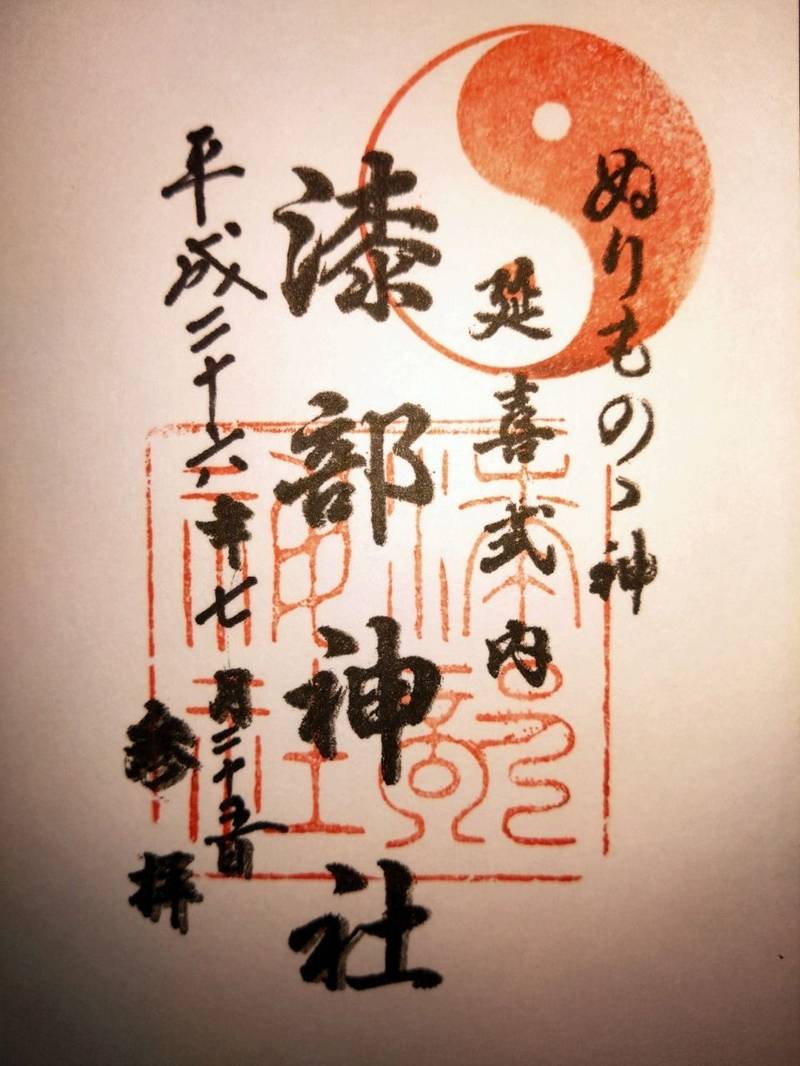 ぬりものゝ神
延喜式内
漆部神社
平成二十六年七月二十五日
参拝
漆部神社